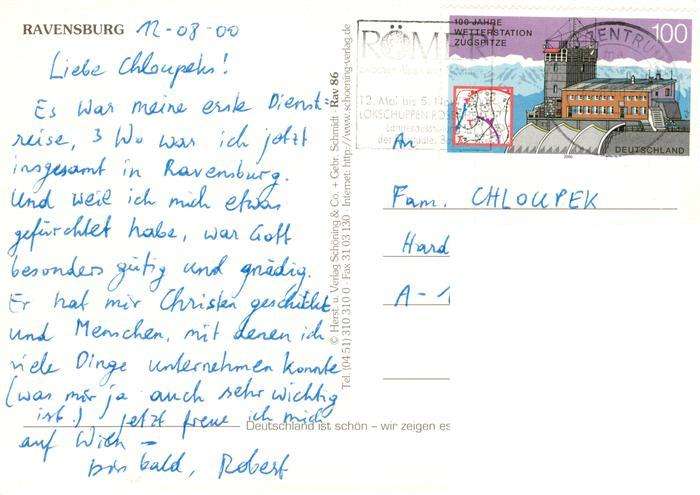 RAVENSBURG 12-08-00
Liebe Chloupeks!
Es war meine erste Dienst-
reise, 3 Wo war ich jetzt
insgesamt in Ravensburg.
Und weil ich mich etwas
gefürchtet habe, war Gott
besonders gütig und gnädig.
Er hat mir Christen geschickt
und Menschen, mit denen ich
viele Dinge unternehmen konnte
(was mir ja auch sehr wichtig
ist.) Jetzt freue ich mich
auf Wien –
bis bald, Robert
© Herst. u. Verlag Schöning & Co. + Gebr. Schmidt Rav 86
Tel. (04 51) 310 310 0 · Fax 31 03 130 · Internet: http://www.schoening-verlag.de
Deutschland ist schön – wir zeigen es
RÖME
12. Mai bis 5. No
LOKSCHUPPEN ROSE
ZENTRU
100 JAHRE
WETTERSTATION
ZUGSPITZE
100
2000
DEUTSCHLAND
An
Fam. CHLOUPEK
Hard
A-1